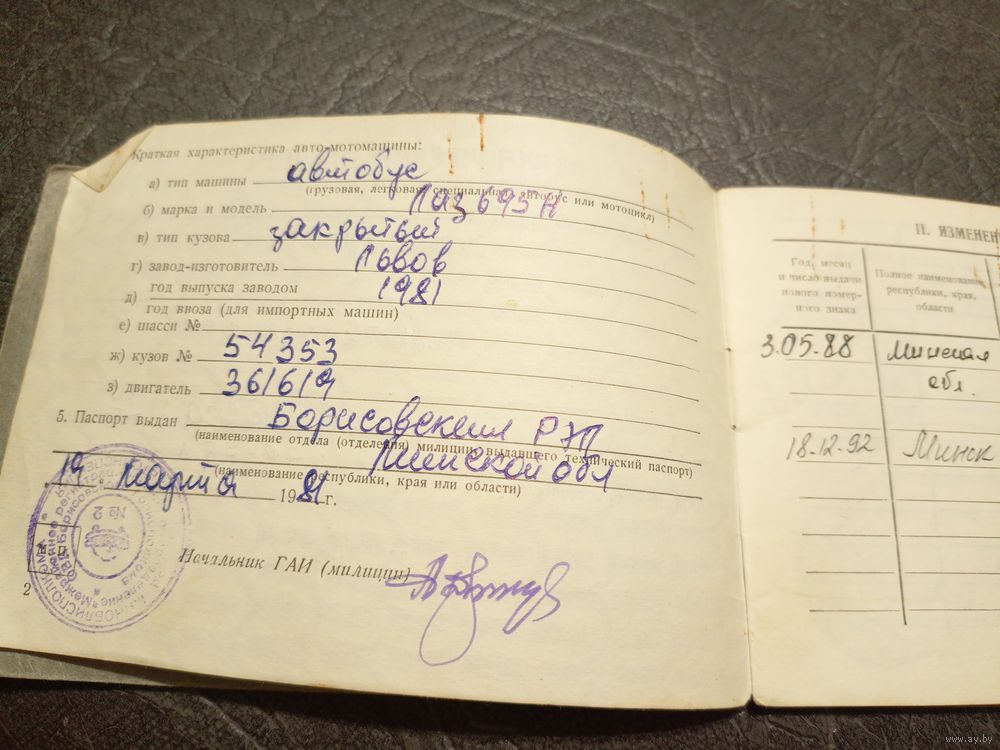 Краткая характеристика авто-мотомашины:
а) тип машины автобус
(грузовая, легковая, специальная, автобус или мотоцикл)
б) марка и модель Лаз 695 Н
в) тип кузова закрытый
г) завод-изготовитель Львов
д) год выпуска заводом 1981
год ввоза (для импортных машин)
е) шасси №
ж) кузов № 54353
з) двигатель 361619
5. Паспорт выдан Борисовским РЭП
(наименование отдела (отделения) милиции, выдавшего технический паспорт)
Минской обл
(наименование республики, края или области)
19 марта 1981 г.
№ 2
Начальник ГАИ (милиции)
2
II. ИЗМЕНЕН
Год, месяц и число выдачи нового номерного знака
Полное наименование республики, края, области
3.05.88 Минская
обл.
18.12.92 Минск
www.ay.by